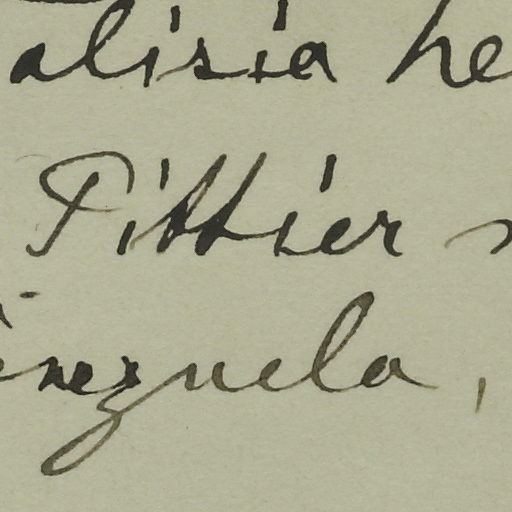 alisia he
Pittier
enezuela,